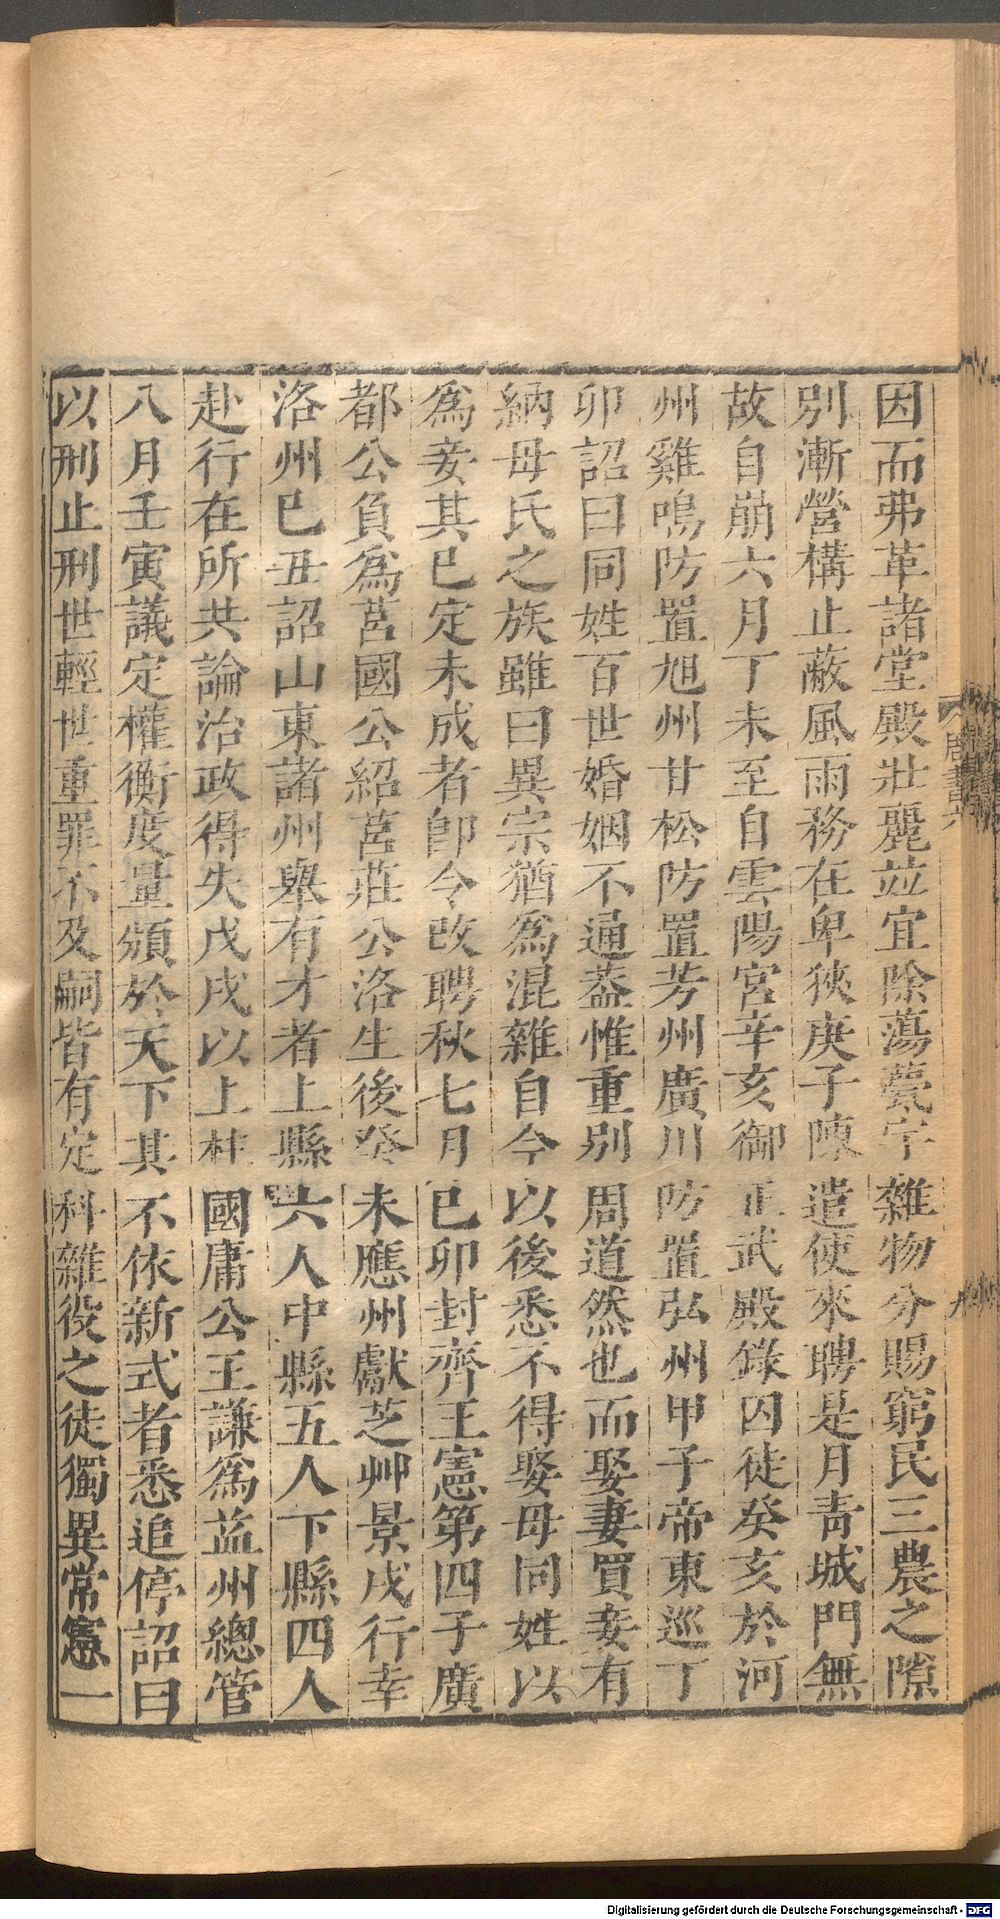 因而弗革諸堂殿壯麗並宜除蕩甍宇雜物分賜窮民三農之隙
別漸營構止蔽風雨務在卑狹庚子陳遣使來聘是月青城門無
故自崩六月丁未至自雲陽宮辛亥御正武殿錄囚徒癸亥於河
州雞鳴防置旭州甘松防置芳州廣川防置弘州甲子帝東巡丁
卯詔曰同姓百世婚姻不通葢惟重別周道然也而娶妻買妾有
納母氏之族雖曰異宗猶爲混雜自今以後悉不得娶母同姓以
爲妾其已定未成者卽令改聘秋七月己卯封齊王憲第四子廣
都公負爲莒國公紹莒莊公洛生後癸未應州獻芝艸景戌行幸
洛州已丑詔山東諸州舉有才者上縣六人中縣五人下縣四人
赴行在所共論治政得失戊戌以上柱國庸公王謙爲益州總管
八月壬寅議定權衡度量頒於天下其不依新式者悉追停詔曰
以刑止刑世輕世重罪不及嗣皆有定科雜役之徒獨異常憲一
周書六
九
Digitalisierung gefördert durch die Deutsche Forschungsgemeinschaft - DFG